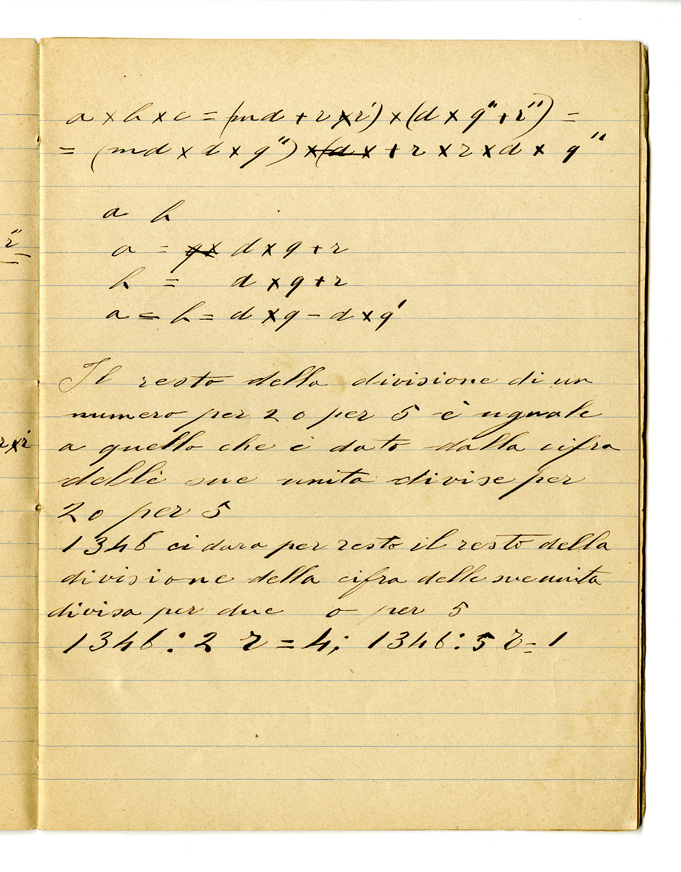 a × b × c = (md + r × r') × (d × q'' + r'') =
= (md × d × q'') ×(d × + r × r × d × q''
a b
a = q× d × q + r
b = d × q + r
a = b = d × q – d × q'
Il resto della divisione di un
numero per 2 o per 5 è uguale
a quello che è dato dalla cifra
delle sue unita divise per
2 o per 5
1346 ci dara per resto il resto della
divisione della cifra delle sue unita
divisa per due o per 5
1346 : 2 r = 4; 1346 : 5 r = 1
r''
r×r'